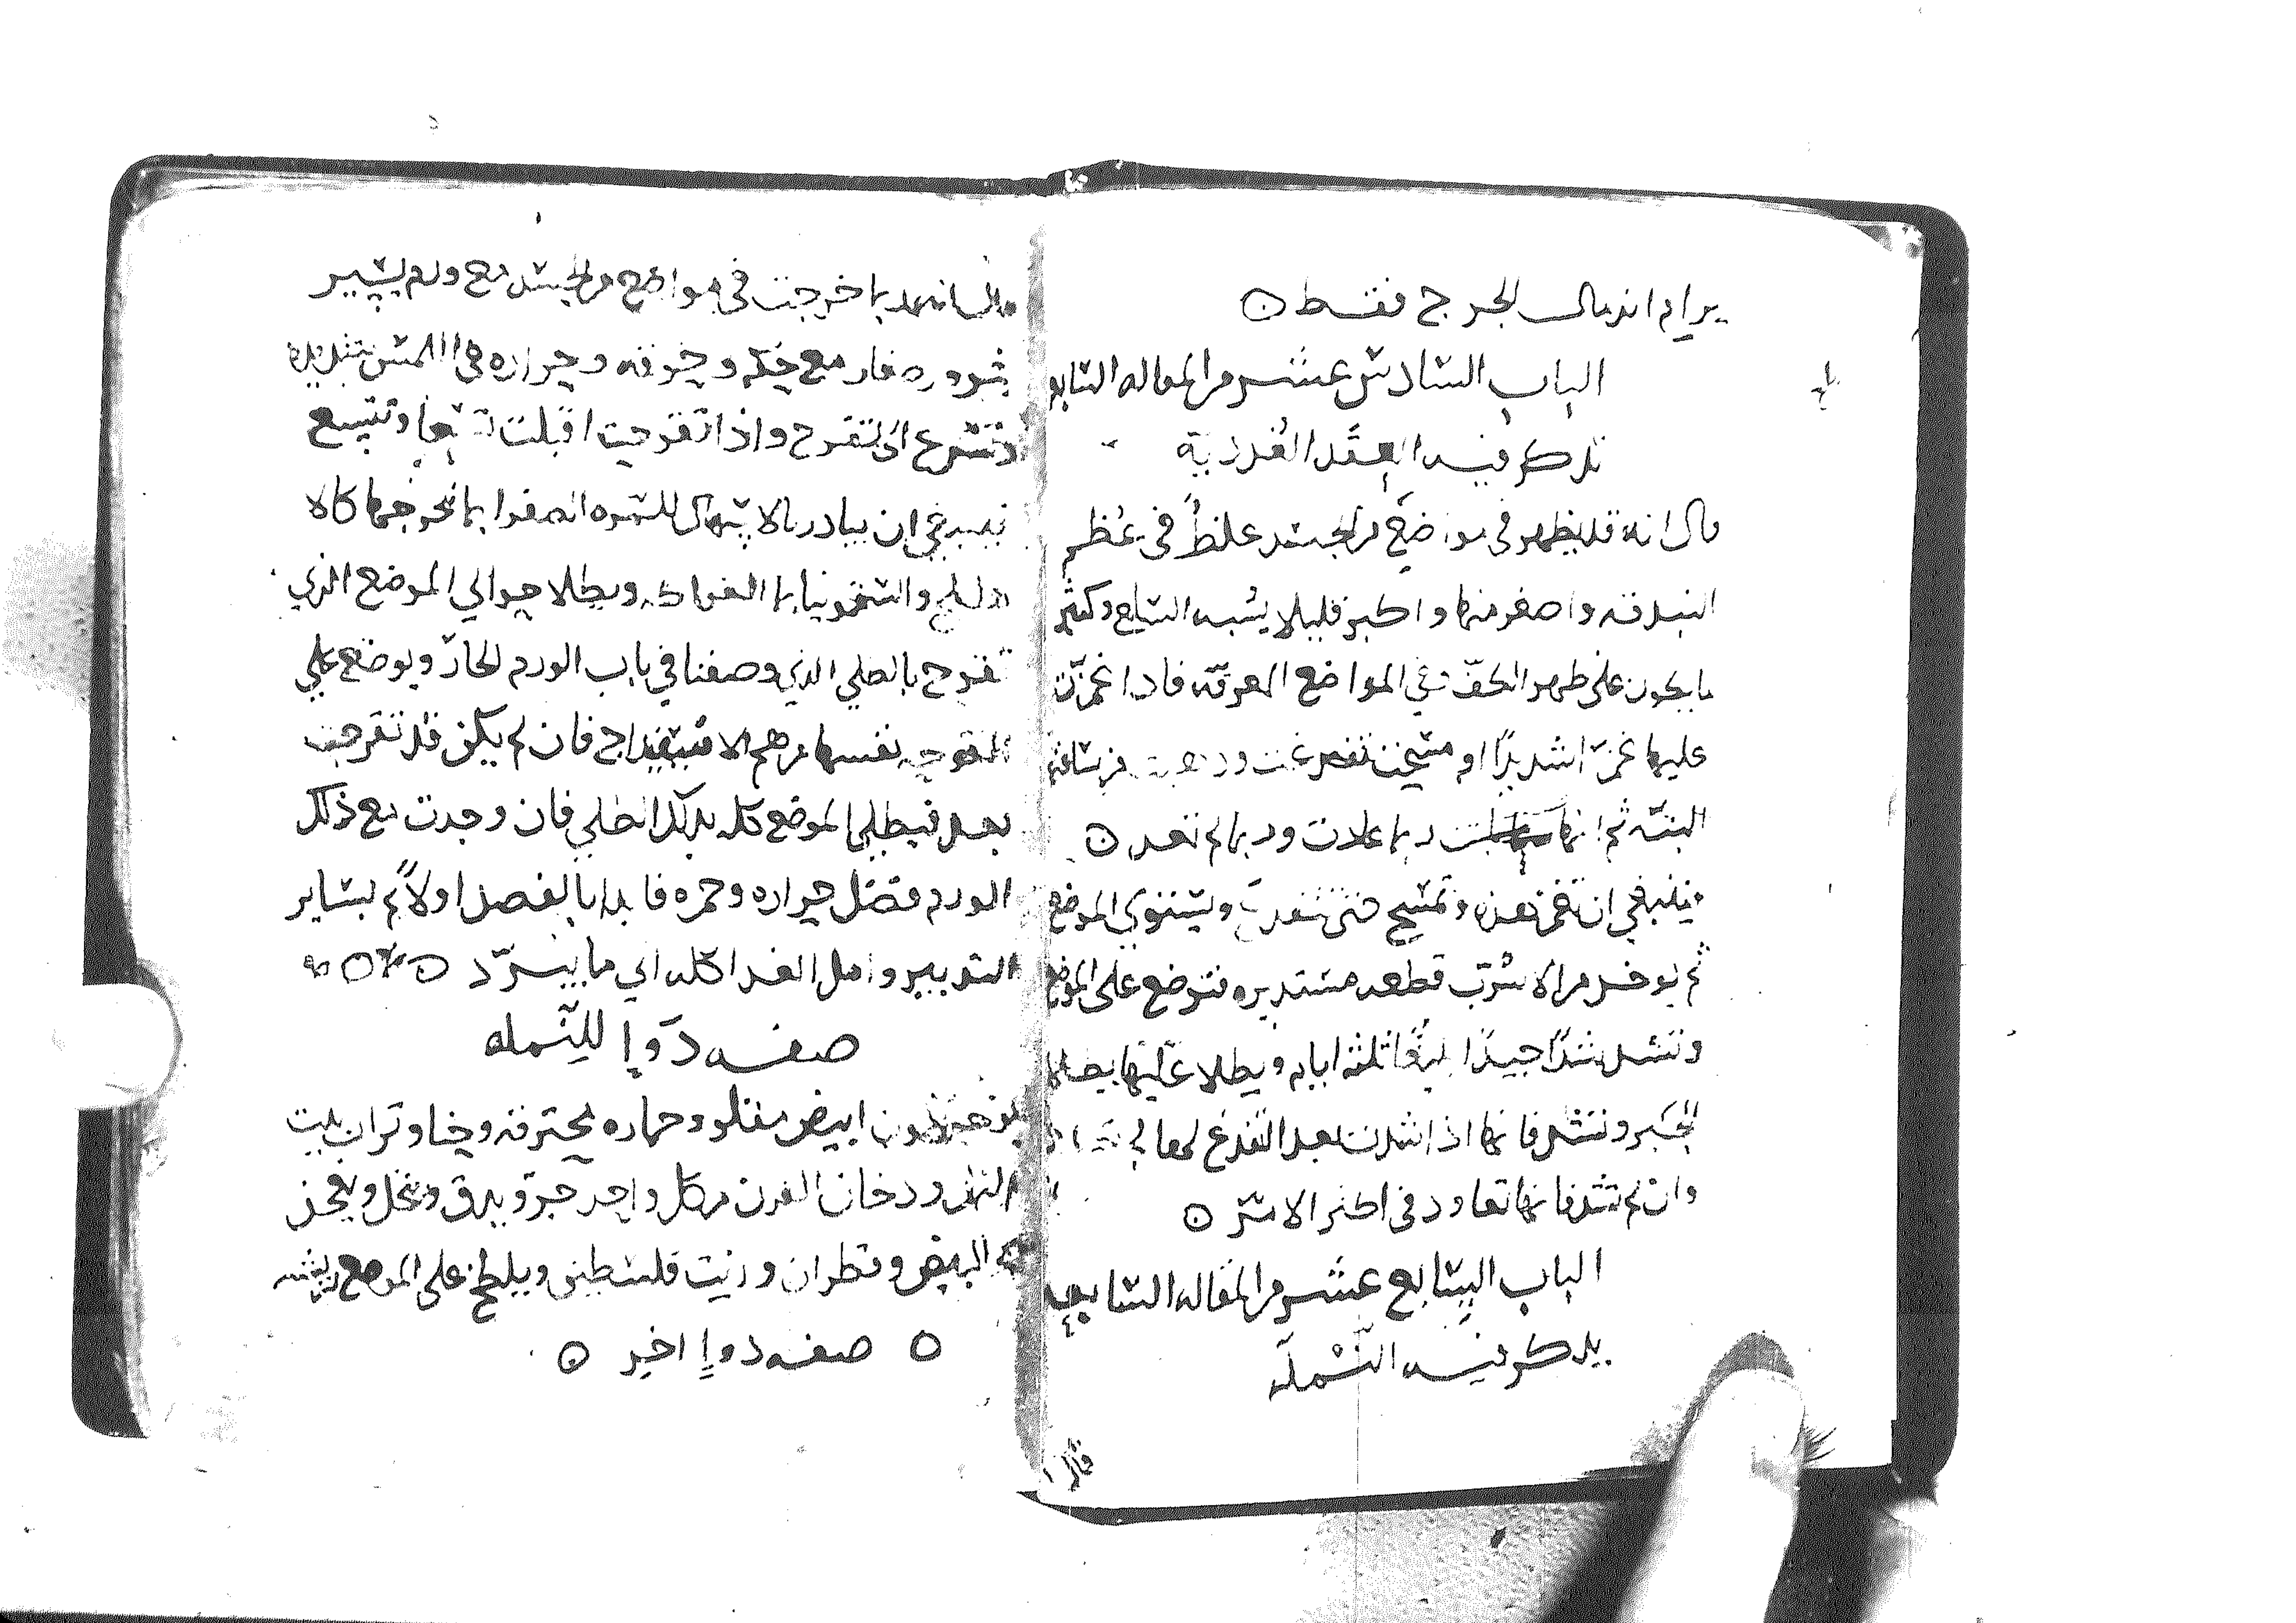 يرام اندمال الجرح فقط ۞
الباب السادس عشر من المقاله السابعه
تذكر فيه العقد الغدديه
قال انه قد يظهر فى مواضع من الجسد غلظ فى عظم
البندقه واصغر منها واكبر قليلا يشبه السلع وكثير
ما يكون على ظهر الكف وفى المواضع المعرقه فاذا غمزت
عليها غمزا شديدا او مسحت تفدغت وذهبت من ساعتها
البته ثم انها ربما عادت وربما لم تعد ۞
فينبغي ان تغمز هذه وتمسح حتى تتفدغ ويستوي الموضع
ثم يوخذ من الاسرب قطعه مستديره فتوضع على الموضع
وتشد شدا جيدا ثلثه ايام ويطلا عليها بطلا
الجبر وتشد فانها اذا شدت بعد التفدغ
وان لم تشد فانها تعاود فى اكثر الامر ۞
الباب السابع عشر من المقاله السابعه
يذكر فيه النمله
قال
قال انه ربما خرجت فى مواضع من الجسد مع ورم يسير
بثور صغار مع حكه وحرقه وحراره فى اللمس شديده
وتسرع الى التقرح واذا تقرحت اقبلت تسعا وتتسع
فينبغي ان يبادر بالاسهال للمره الصفرا بما يخرجها كالا
هليلج والسقمونيا بما الفواكه ويطلا حوالي الموضع الذي
تقرح بالطلي الذي وصفنا في باب الورم الحار ويوضع علي
القرحه نفسها مرهم الاسفيداج فان لم يكن قد تقرحت
بعد فيطلي الموضع كله بذلك الطلي فان وجدت مع ذلك
الورم فضل حراره وحمره فابدا بالفصد اولا ثم بساير
التدبير وامل الغذا كله الي ما يبرد ۞
صفه دوا للنمله
ابيض مقلو وحماره محترقه وحنا وتراب بيت
النمل ودخان الفرن من كل واحد جزو يدق وينخل ويعجن
البيض وقطران وزيت فلسطين ويلطخ على الموضع
۞ صفه دوا اخر ۞